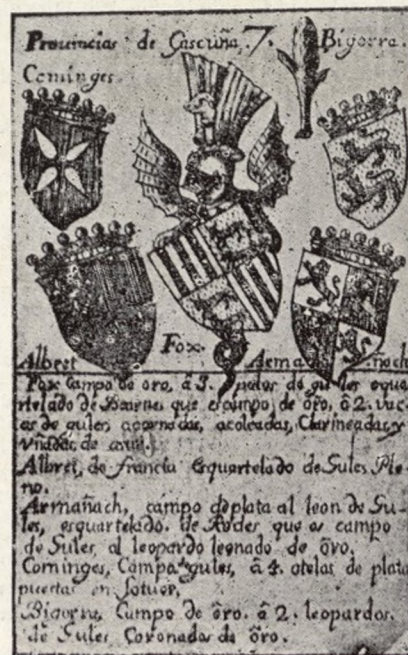 Provincias de Gascuña. 7. Bigorra.
Cominges
Fox
Albret Arma ñach
Fox Campo de oro, â 3. palos de gules esqua
rtelado de Bearne que es campo de oro, â 2. vac
as de gules, acornadas, acoleadas, Clarineadas, y
vñadas, de azul.
Albret, de francia Esquartelado de Gules Ple
no.
Armañach, campo de plata al leon de Gu
les, esquartelado, de Rodes que es campo
de Gules, al leopardo leonado de ôro,
Cominges, Campo gules, â 4. otelas de plata
puestas en sotuer,
Bigorra, Campo de ôro. â 2. leopardos.
de Gules Coronados de ôro.